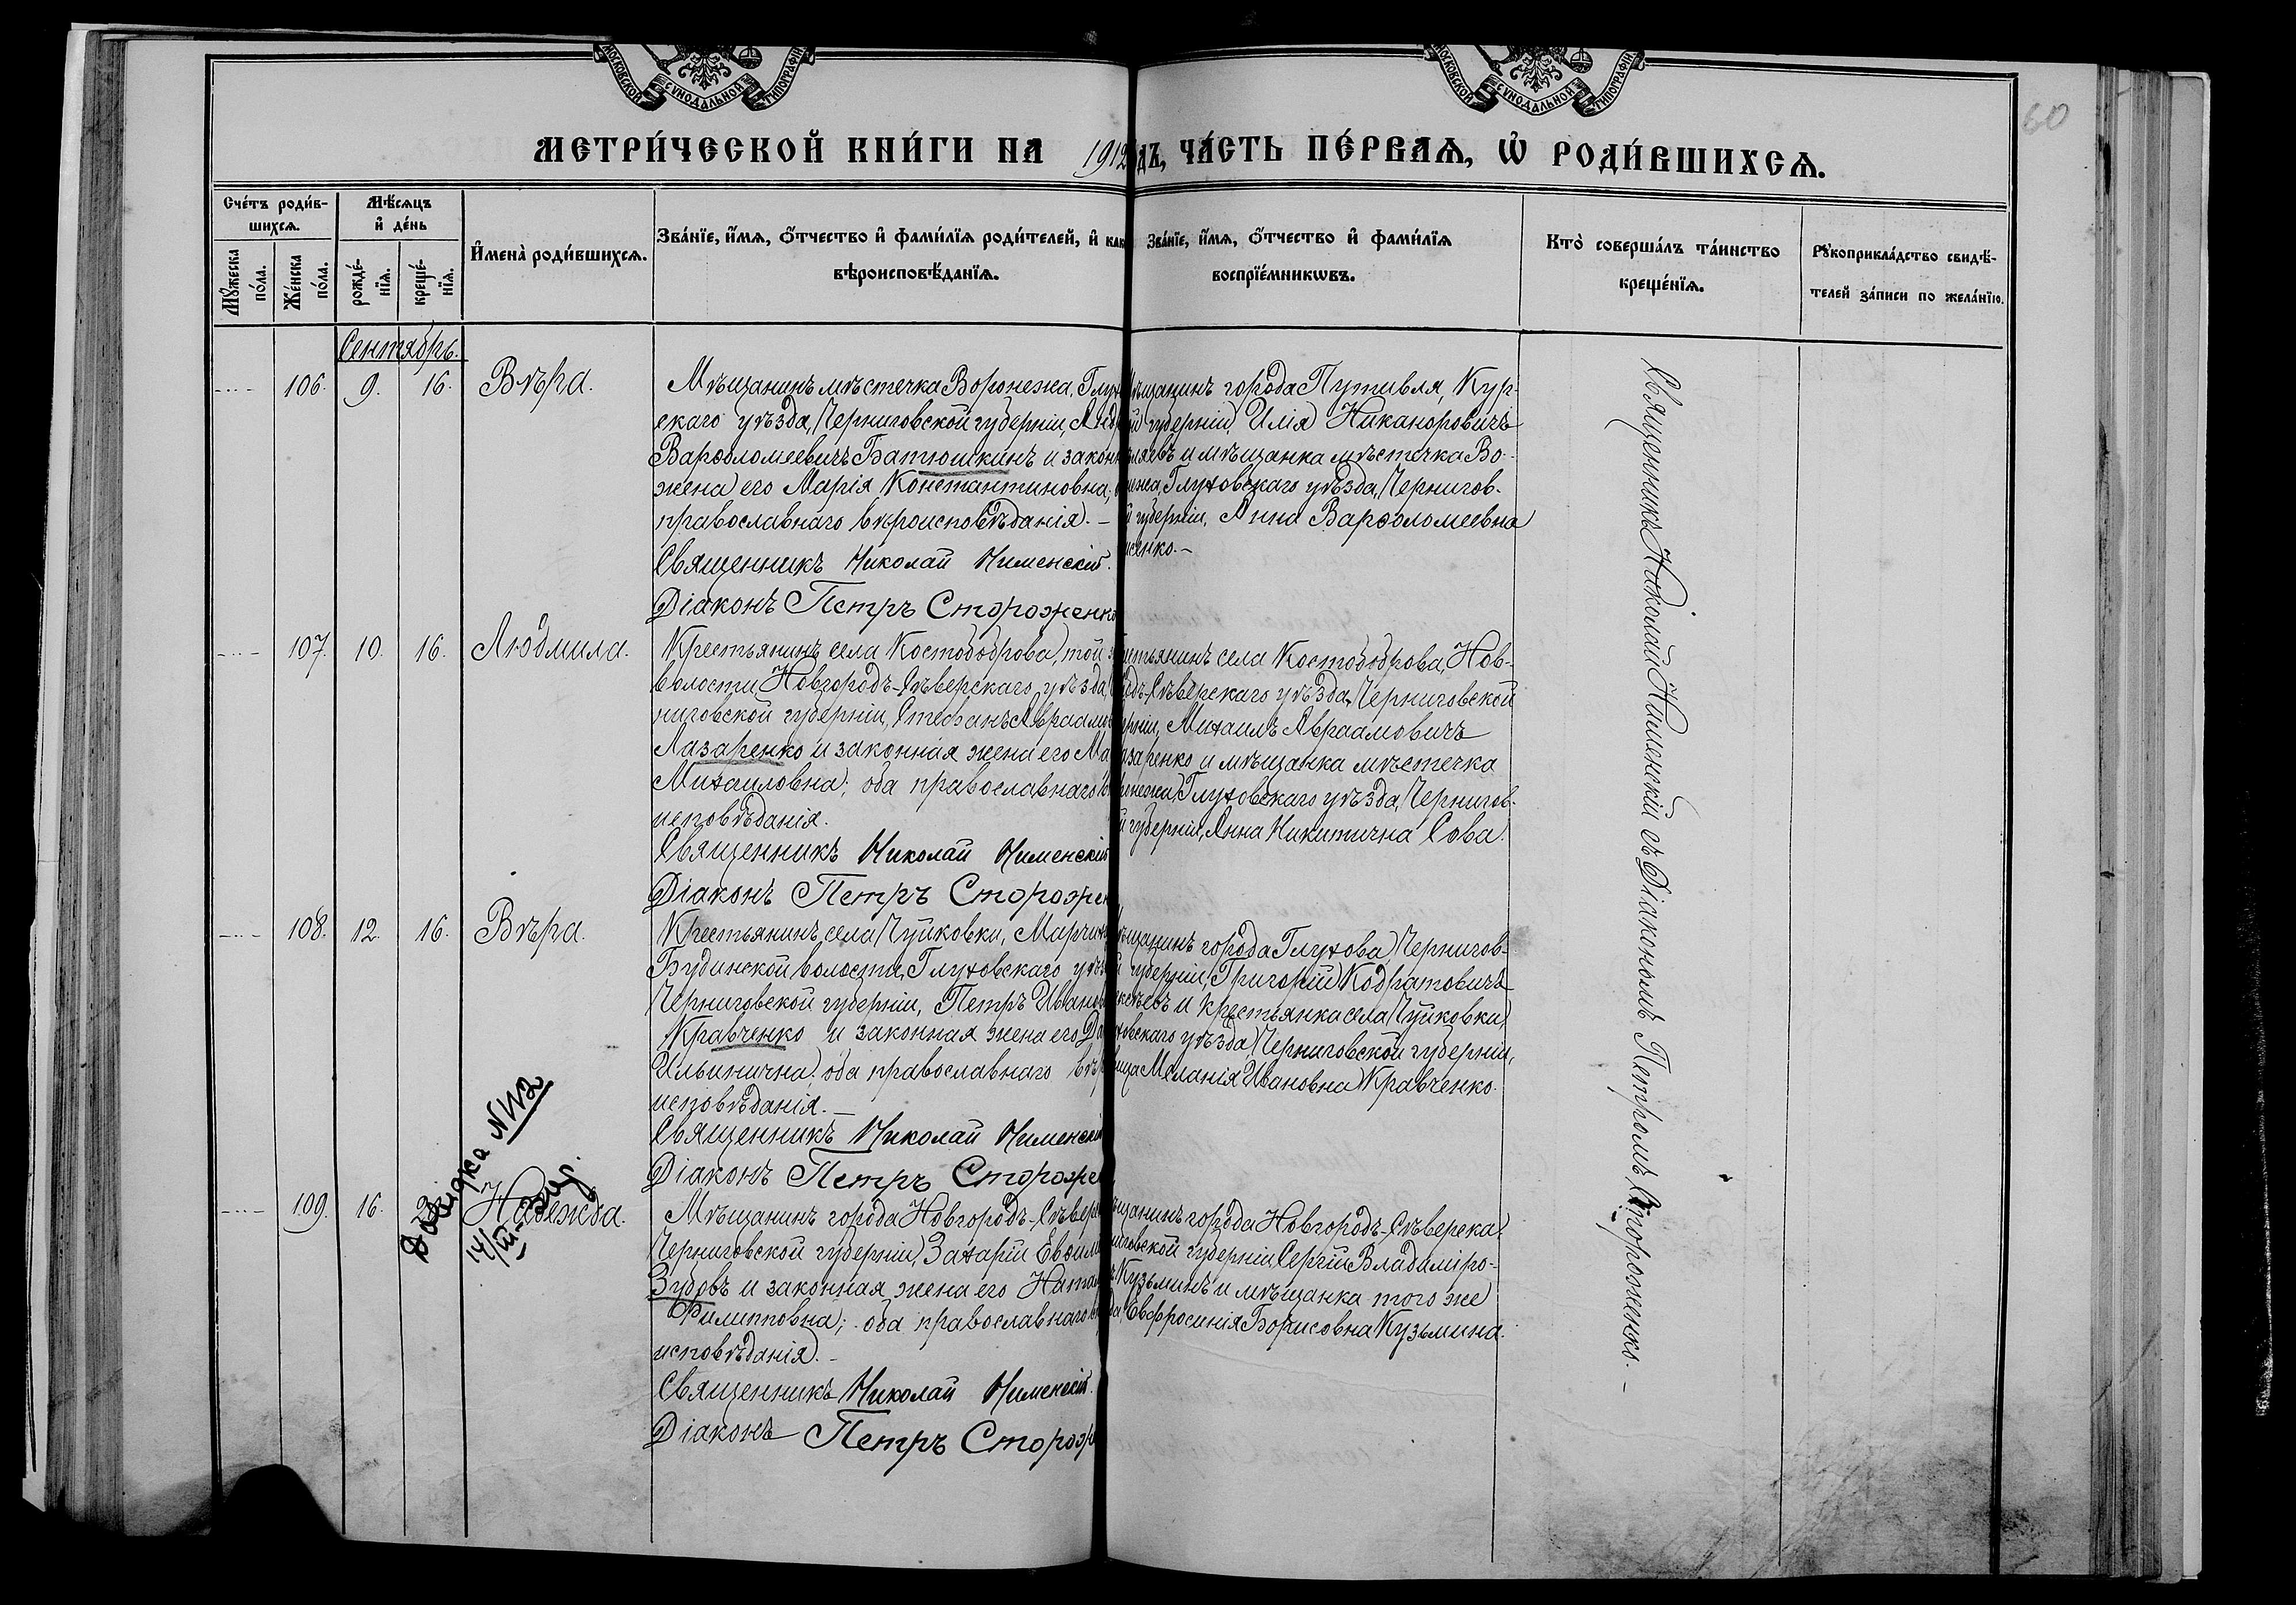 МОСКОВСКОЙ СѴНОДАЛЬНОЙ ТИПОГРАФІИ
МОСКОВСКОЙ СѴНОДАЛЬНОЙ ТИПОГРАФІИ
60
МЕТРИ́ЧЕСКОЙ КНИ́ГИ НА 1912 дъ, ЧА́СТЬ ПЕ́РВАѦ, Ѡ҆ РОДИ́ВШИХСѦ.
Сче́тъ роди́в-
шихсѧ.
Мꙋ́жеска по́ла.
Же́нска по́ла.
Мѣ́сѧцъ
и҆ де́нь
рожде́-
нїѧ.
креще́-
нїѧ.
И҆мена̀ роди́вшихсѧ.
Зва́нїе, и҆́мѧ, ѻ҆́тчество и҆ фами́лїѧ роди́телей, и҆ как
вѣроисповѣ́данїѧ.
Зва́нїе, и҆́мѧ, ѻ҆́тчество и҆ фами́лїѧ
воспрїе́мникѡвъ.
Кто̀ соверша́лъ та́инство
креще́нїѧ.
Рꙋкоприкла́дство свидѣ́-
телей за́писи по жела́нїю.
Сентябрь.
106. 9. 16. Вѣра.
Мѣщанинъ мѣстечка Воронежа, Глух
скаго уѣзда, Черниговской губерніи, Анд
Варѳоломеевичъ Батюшкинъ и закон
жена его Марія Константиновна;
православнаго вѣроисповѣданія. –
Священникъ Николай Именскій.
Діаконъ Петръ Стороженко
щанинъ города Путивля, Кур-
й губерніи, Илія Никаноровичъ
и мѣщанка мѣстечка Во-
нежа, Глуховскаго уѣзда, Чернигов-
й губерніи, Анна Варѳоломеевна
сенко. –
107. 10. 16. Людмила.
Крестьянинъ села Костобоброва, той
волости, Новгородъ-Сѣверскаго уѣзда,
ниговской губерніи, Стефанъ Авраам
Лазаренко и законная жена его Ма
Михаиловна; оба православнаго в
исповѣданія.
Священникъ Николай Именскій
Діаконъ Петръ Стороже
стьянинъ села Костобоброва, Нов-
дъ-Сѣверскаго уѣзда, Черниговской
рніи, Михаилъ Авраамовичъ
азаренко и мѣщанка мѣстечка
онежа, Глуховскаго уѣзда, Чернигов-
й губерніи, Анна Никитична Сова.
108. 12. 16. Вѣра.
Крестьянинъ села Чуйковки, Марчих
Будинской волости, Глуховскаго уѣз
Черниговской губерніи, Петръ Иванов
Кравченко и законная жена его
Ильинична; оба православнаго вѣр
исповѣданія. –
Священникъ Николай Именскій
Діаконъ Петръ Стороже
щанинъ города Глухова, Чернигов-
й губерніи, Григорій Кодратовичъ
и крестьянка села Чуйковки,
ховскаго уѣзда, Черниговской губерніи,
вица Меланія Ивановна Кравченко.
Довидка №112
14/III-
109. 16. Надежда.
Мѣщанинъ города Новгородъ-Сѣверс
Черниговской губерніи, Захарій Евѳим
Зубовъ и законная жена его Натал
Филипповна; оба православнаго
исповѣданія. –
Священникъ Николай Именскій.
Діаконъ Петръ Сторож
щанинъ города Новгородъ-Сѣверска,
ниговской губерніи, Сергій Владиміро-
Кузьминъ и мѣщанка того же
да Евфросинія Борисовна Кузьмина.
Священникъ Николай Именскій съ Діакономъ Петромъ Стороженко. –